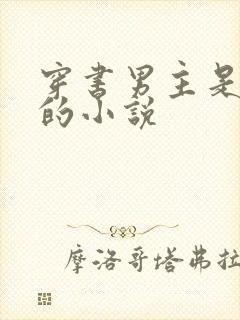 穿书男主是
的小说
摩洛哥塔弗拉